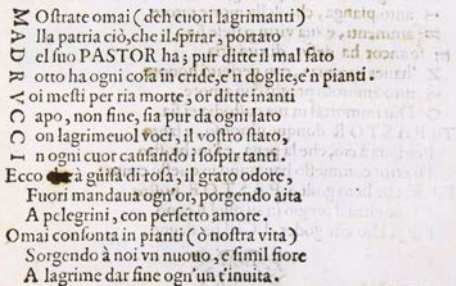 M Oſtrate omai (deh cuori lagrimanti)
A lla patria ciò,che il ſpirar,
D el ſuo PASTOR ha; pur ditte il mal fato
R otto ha ogni coſa in cride,e'n doglie,e'n pianti.
V oi meſti per ria morte, o dilite inanti
C apo, non fine, ſia pur da ogni lato
C on lagrimeuol voci, il voſtro flato,
I n ogni cuor cauſando i ſoſpir tanti.
Ecco à guiſa di roſa, il grand'odore,
Fuori mandaua ogn'or, porgendo aita
A pelegrini, con perfetto amore.
Omai conſonta in pianti (ò noſtra vita)
Sorgendo à noi vn nuouo, e ſimil fiore
A lagrime dar fine ogn'un t'inuita.